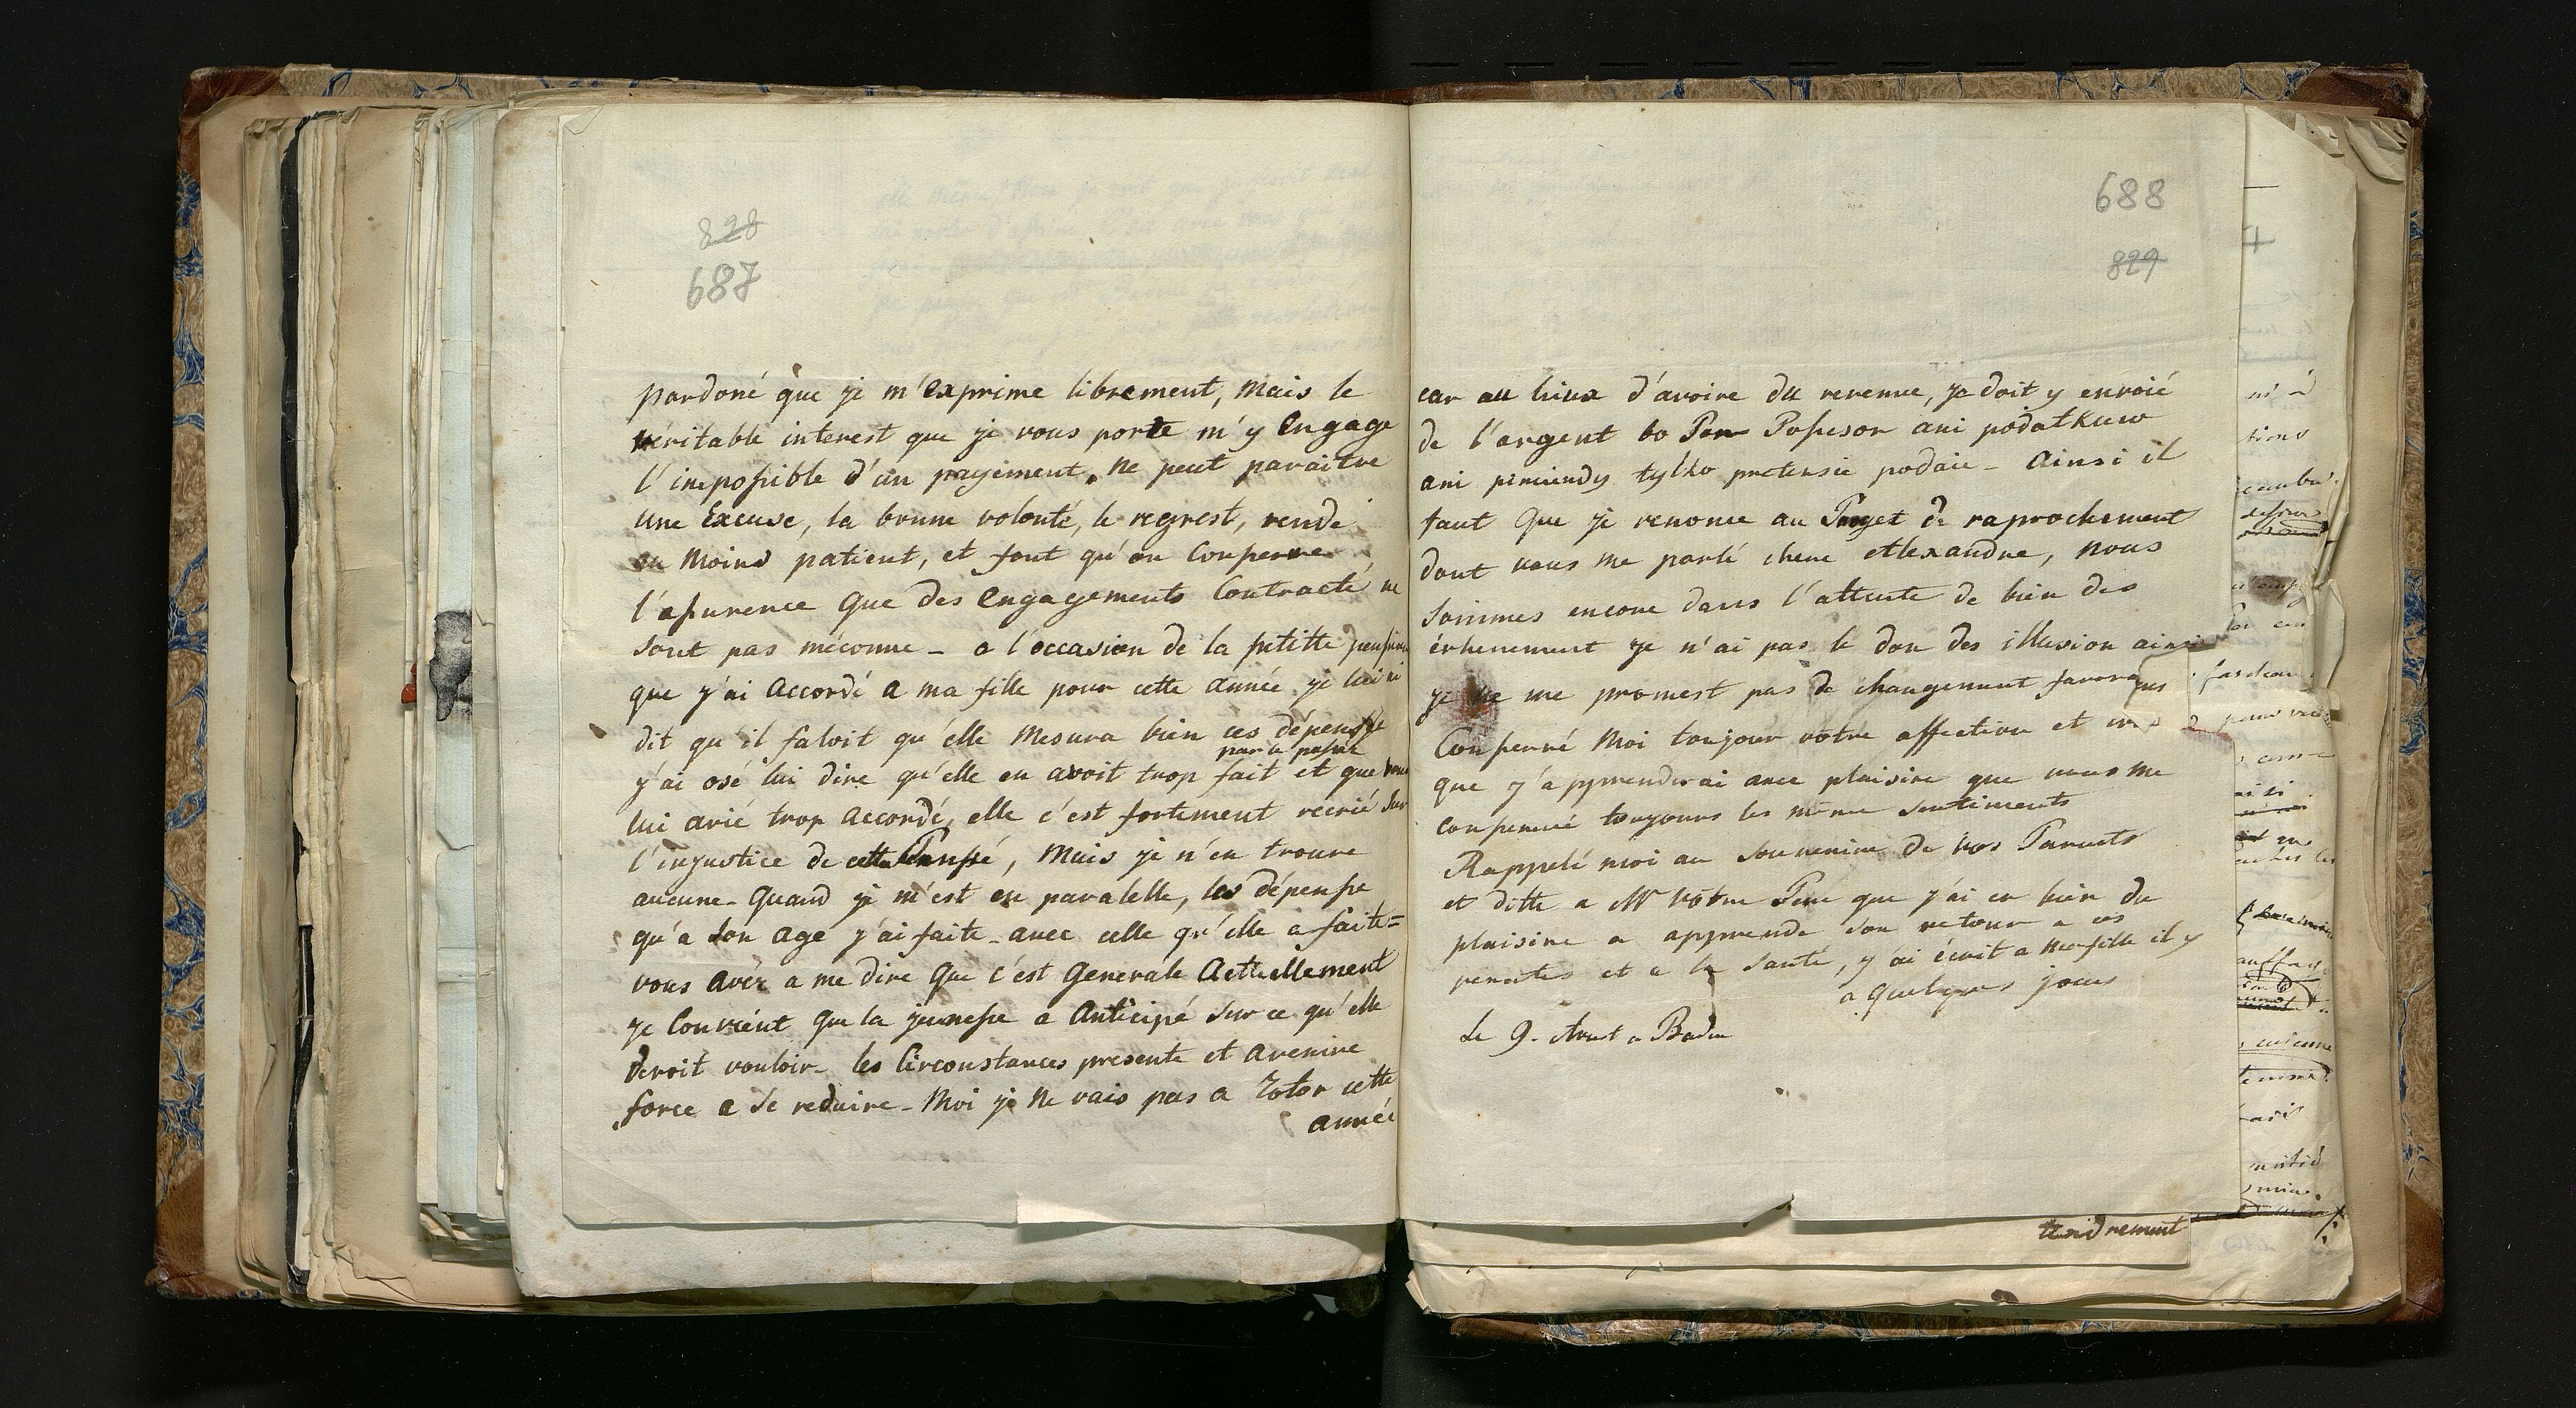 828
687
pardoné que je m'exprime librement, mais le
véritable interest que je vous porte m'y engage
l'impossible d'un payement, ne peut paraitre
une Excuse, la bonne volonté, le regrest, rende
au moins patient, et font qu'on conserve
l'assurence que des engagements contracté ne
sont pas méconnue - a l'occasion de la petitte pension
que j'ai accordé a ma fille pour cette année je lui ai
dit qu'il faloit qu'elle mesura bien ces dépense
par le passé
j'ai osé lui dire qu'elle en avoit trop fait et que vous
lui avié trop accordé, elle c'est fortement recrié sur
l'injustice de cette Pensée, mais je n'en trouve
aucune - quand je m'est en paralelle, les dépense
qu'a son age j'ai faite - avec celle qu'elle a faite =
vous avéz a me dire que c'est generale actuellement
je convient que la jeunesse a anticipé sur ce qu'elle
devoit vouloir - les circonstances presente et avenire
force a se reduire - Moi je ne vais pas a Totor cette
année
688
829
car au lieux d'avoire du revenue, je doit y envoié
de l'argent bo Pan Possesor ani podatkuw
ani pieniendzy tylko pretensie podaie - ainsi il
faut que je renonce au Projet de raprochement
dont vous me parlé chere Alexandre, nous
sommes encore dans l'attente de bien des
évhenement je n'ai pas le don des illusion ainsi
je ne me promest pas de changement
Conservé moi toujour votre affection et
que j'apprenderai avec plaisire que vous me
conservé toujours les même sentiments
Rappelé moi au souvenire de vos Parents
et ditte a Mr votre Pere que j'ai eu bien du
plaisire a apprende son retour a ces
penates et a la santé, j'ai écrit a ma fille il y
a quelques jours
Le 9. Aout a Baden
tendrement